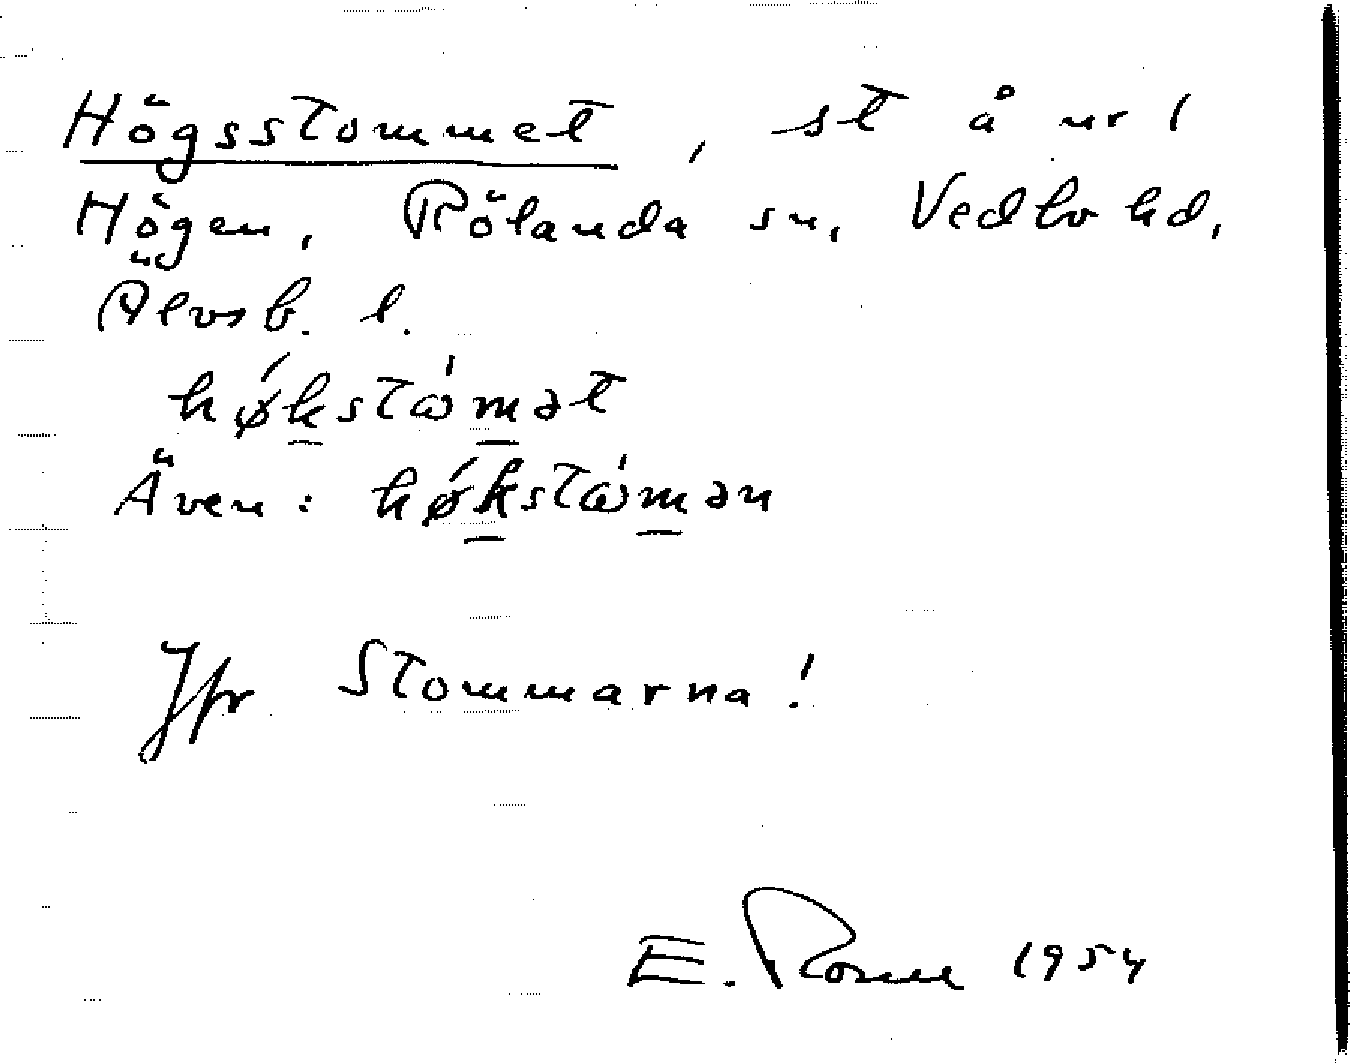 Högsstommet, st å nr 1
Högen, Rölanda sn, Vedbo hd,
Älvsb. l.
hǿkstω̇mət
Även: hǿkstω̇mən
Jfr Stommarna!
E. 1954